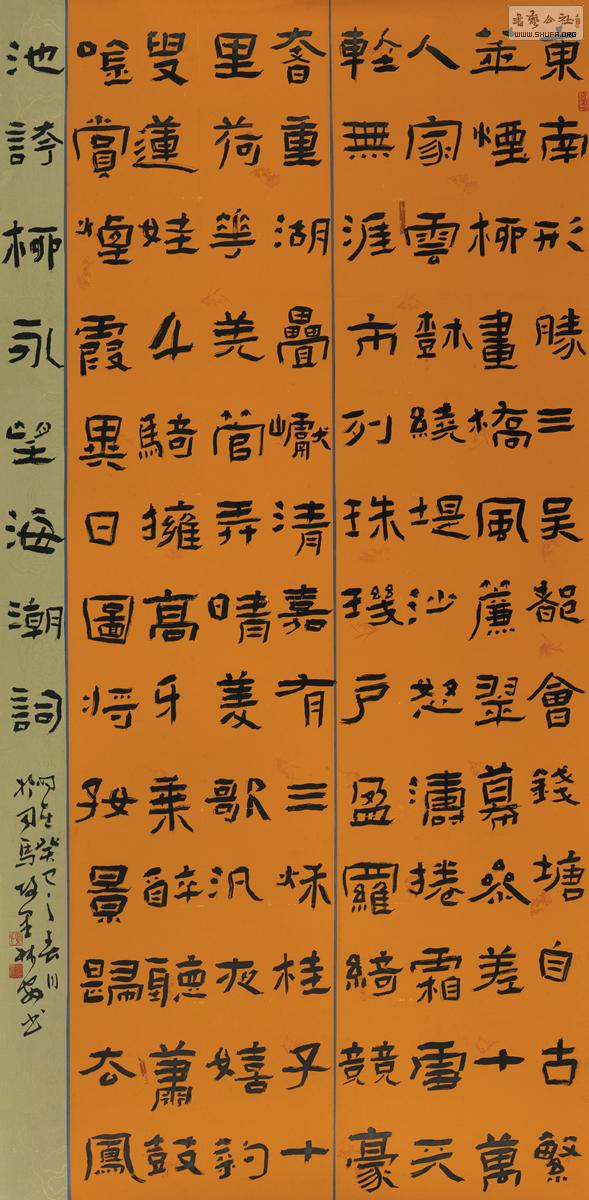 東南形勝三吳都會錢塘自古繁
華煙柳畫橋風簾翠幕參差十萬
人家雲樹繞堤沙怒濤捲霜雪天
塹無涯市列珠璣戶盈羅綺競豪
奢重湖疊巘清嘉有三秋桂子十
里荷華羌管弄晴菱歌汎夜嬉釣
叟蓮娃千騎擁高牙乘醉聽蕭鼓
吟賞煙霞異日圖將好景歸去鳳
池誇柳永望海潮詞
癸巳之春月
於司馬
書
WWW.SHUFA.ORG